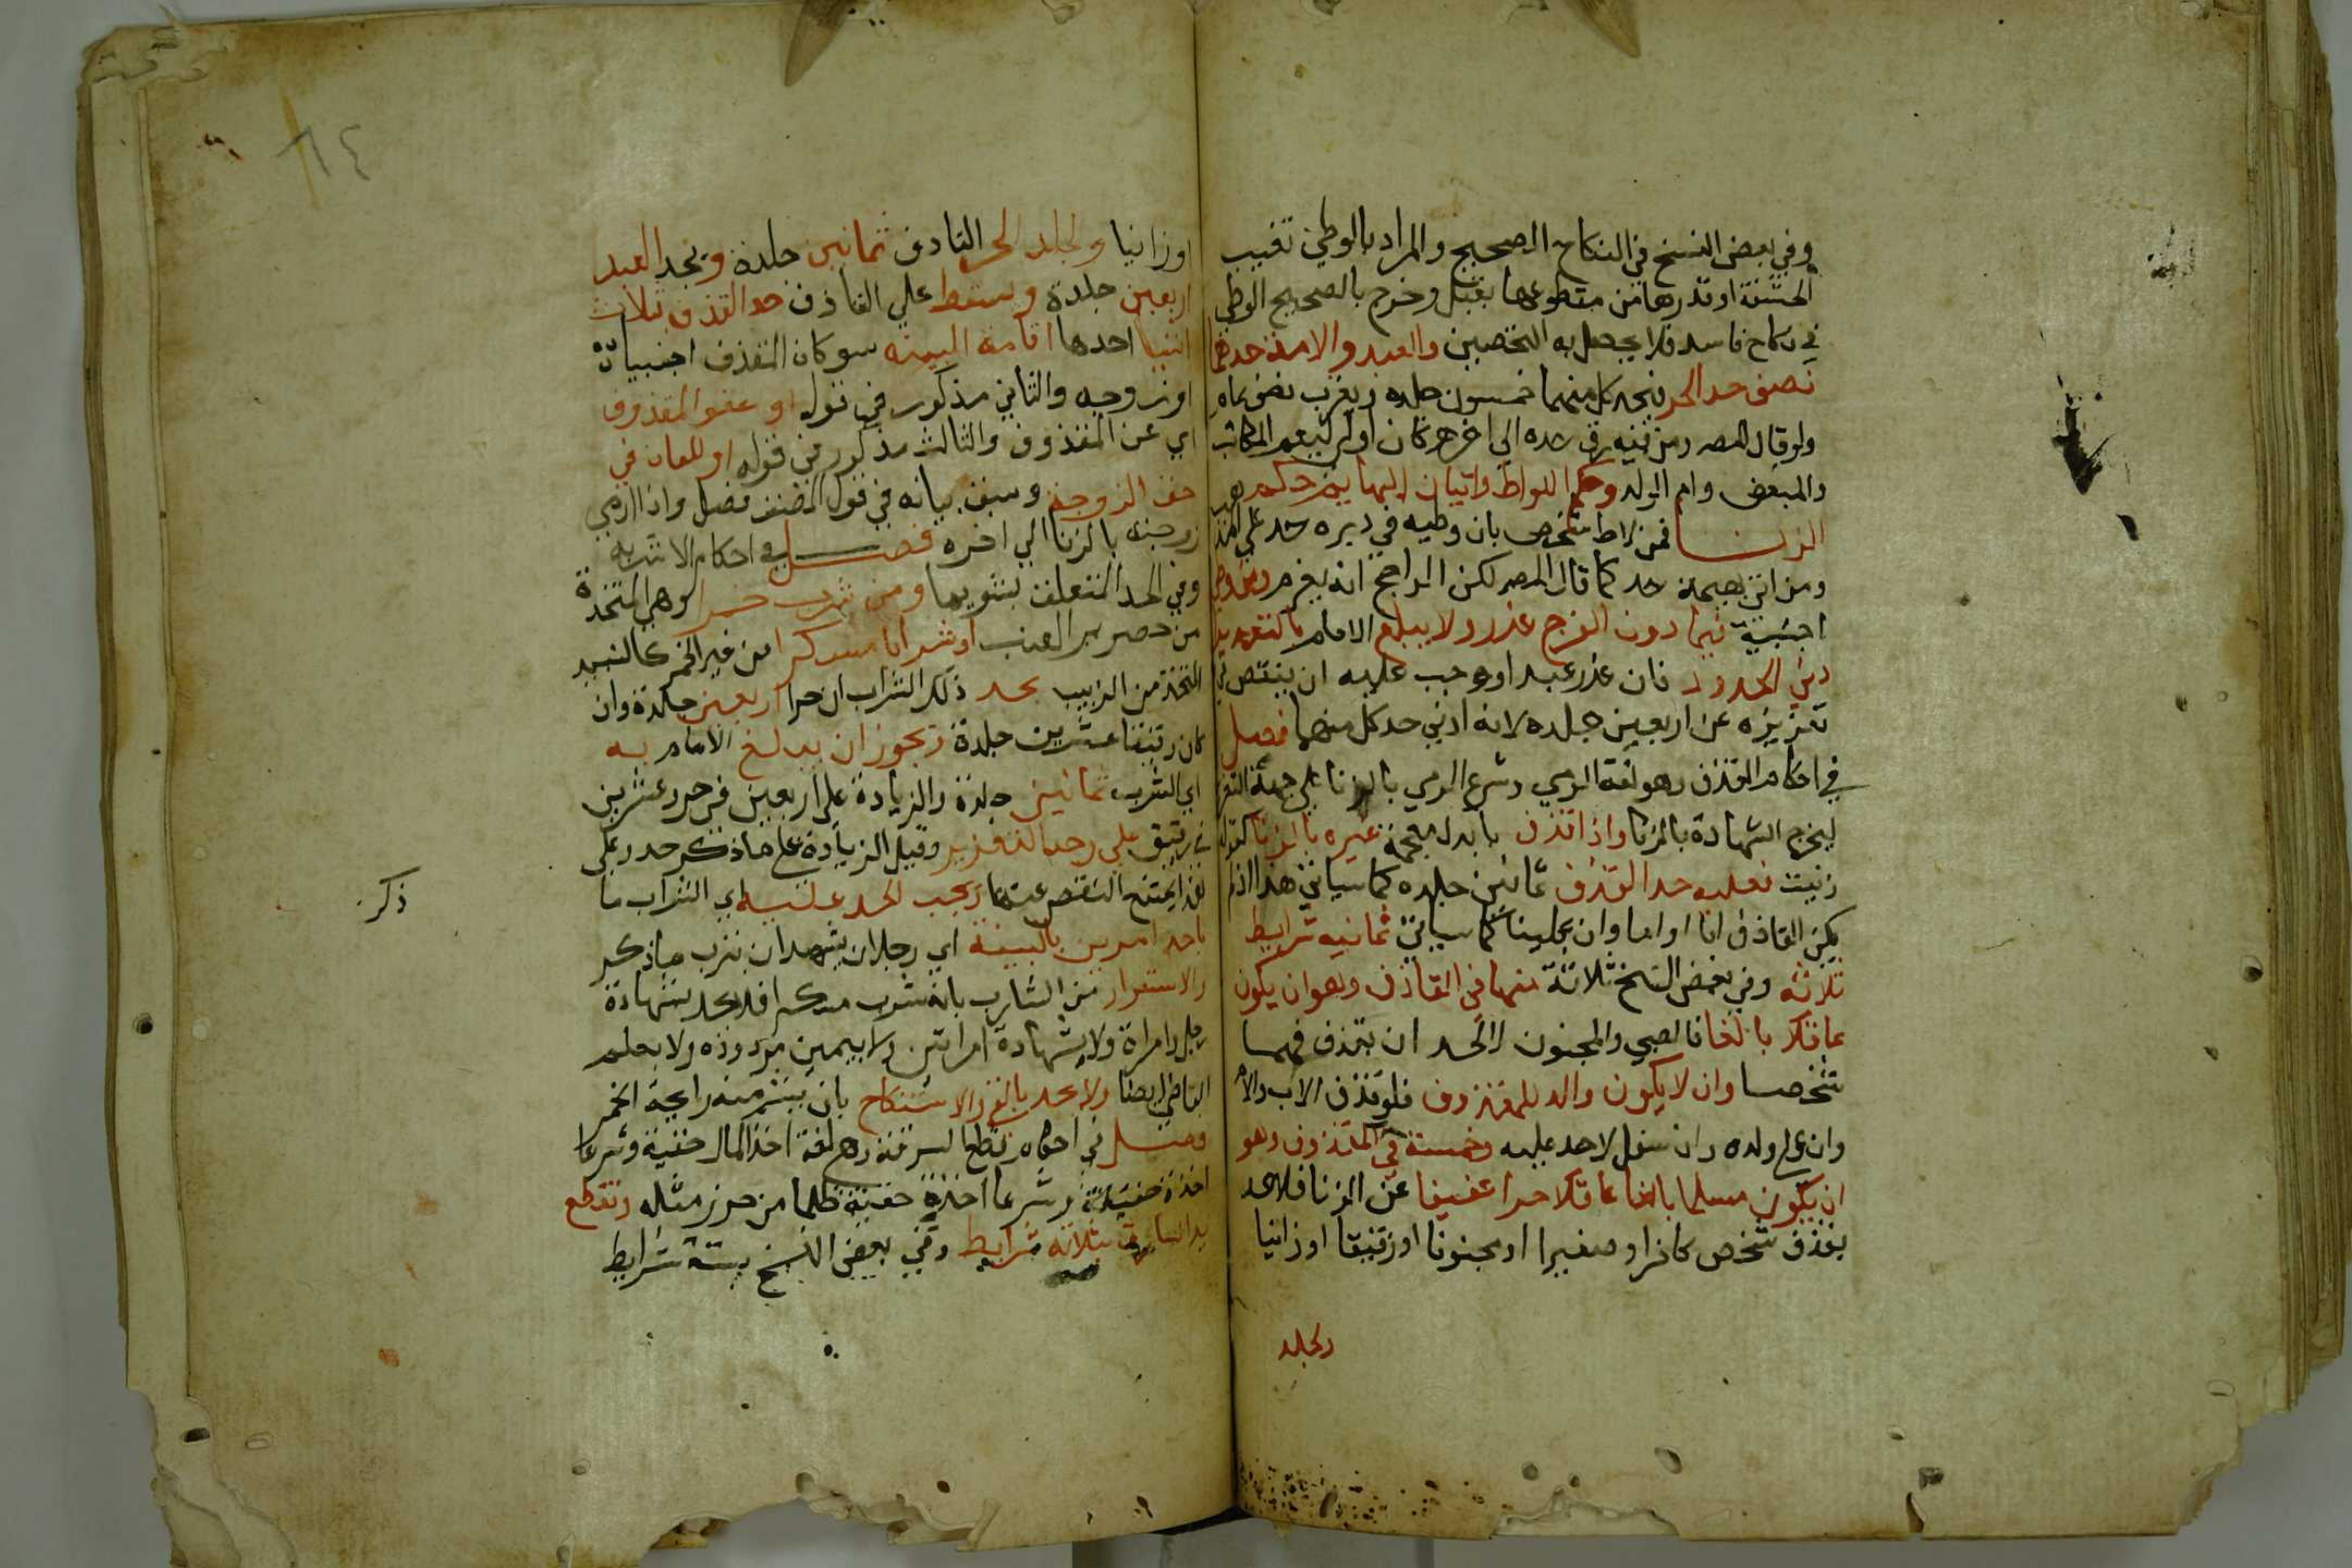 وفي بعض النسخ في النكاح الصحيح والمراد بالوطئ تغييب
الحشفة او قدرها من مقطوعها بقبل وخرج بالصحيح الوطئ
في نكاح فاسد فلا يحصل به التحصين والعبد والامة حدهما
نصف حد الحر فيحد كل منهما خمسون جلده ويغرب نصف عام
ولو قال المصـ ومن فيه رق حده الي اخره كان اولي ليعم المكاتب
والمبعض وام الولد وحكم اللواط واتيان البهايم حكم
الزنا فمن لاط بشخص بان وطيه في دبره حد علي المذ
ومن اتي بهيمة حد كما قال المصـ لكن الراجح انه يعزر ومن وطي
اجنبية فيما دون الفرج عزر ولا يبلغ الامام بالتعزير
ادني الحدود فان عزر عبدا وجب عليه ان ينقص في
تعزيزه عن اربعين جلده لانه ادني حد كل منهما فصل
في احكام القذف وهو لغة الرمي وشرعا الرمي بالزنا علي جهة التعير
ليخرج الشهادة بالزنا واذا قذف بالذال معجمة غيره بالزنا كقوله
زنيت فعليه حد القذف ثمانين جلده كما سياتي هذا اذا لم
يكن القاذف ابا او اما وان عليا كما سياتي ثمانيه شرايط
ثلاثه وفي بعض النسخ ثلاثة منها في القاذف وهو ان يكون
عاقلا بالغا فالصبي والمجنون لا يحد ان بقذفهما
شخصا وان لا يكون والد للمقذوف فلو قذف الاب والام
وان علي ولده وان سفل لا حد عليه وخمسة في المقذوف وهو
ان يكون مسلما بالغا عاقلا حرا عفيفا عن الزنا فلا حد
بقذف شخص كافرا او صغيرا او مجنونا او رقيقا او زانيا
ويجلد
٦٤
او زانيا ويجلد الحر القاذف ثمانين جلدة ويحد العبد
اربعين جلدة ويسقط علي القاذف حد القذف بثلاث
اشيا احدها اقامة البينه سو كان المقذف اجنبيا
او زوجه والثاني مذكور في قوله او عفو المقذوف
اي عن المقذوف والثالث مذكور في قوله او اللعان في
حق الزوجة وسبق بيانه في قول المصنف فصل واذا رمي
زوجته بالزنا الي اخره فصل في احكام الاشربه
وفي الحد المتعلق بشربها ومن شرب خمرا وهي المتخذة
من عصير العنب او شرابا مسكرا من غير الخمر كالنبيد
المتخذ من الزبيب يحد ذلك الشراب ان حرا اربعين جلدة وان
كان رقيقا عشرين جلدة ويجوز ان يبلغ الامام به
اي الشرب ثمانين جلدة والزيادة علي اربعين في حر وعشرين
في رقيق علي وجه التعزير وقيل الزيادة علي ما ذكر حد وعلي
هذا يمتنع النقص عنها ويجب الحد عليه اي الشراب ما
ذكر
باحد امرين بالبينة اي رجلان يشهدان بشرب ما ذكر
والاقرار من الشارب بانه شرب مسكرا فلا يحد بشهادة
رجل وامراة ولا بشهادة امراتين ولا بيمين مردوده ولا بعلم
القاضي ايضا ولا يحد بالقئ والاستنكاح بان يشم منه رايحة الخمر
فصل في احكام قطع السرقة وهي لغة اخذ المال خفية وشرعا
اخذه خفية وشرعا اخذه خفية ظلما من حرز مثله وتقطع
يد السارق بثلاثه شرايط وفي بعض النسخ بستة شرايط